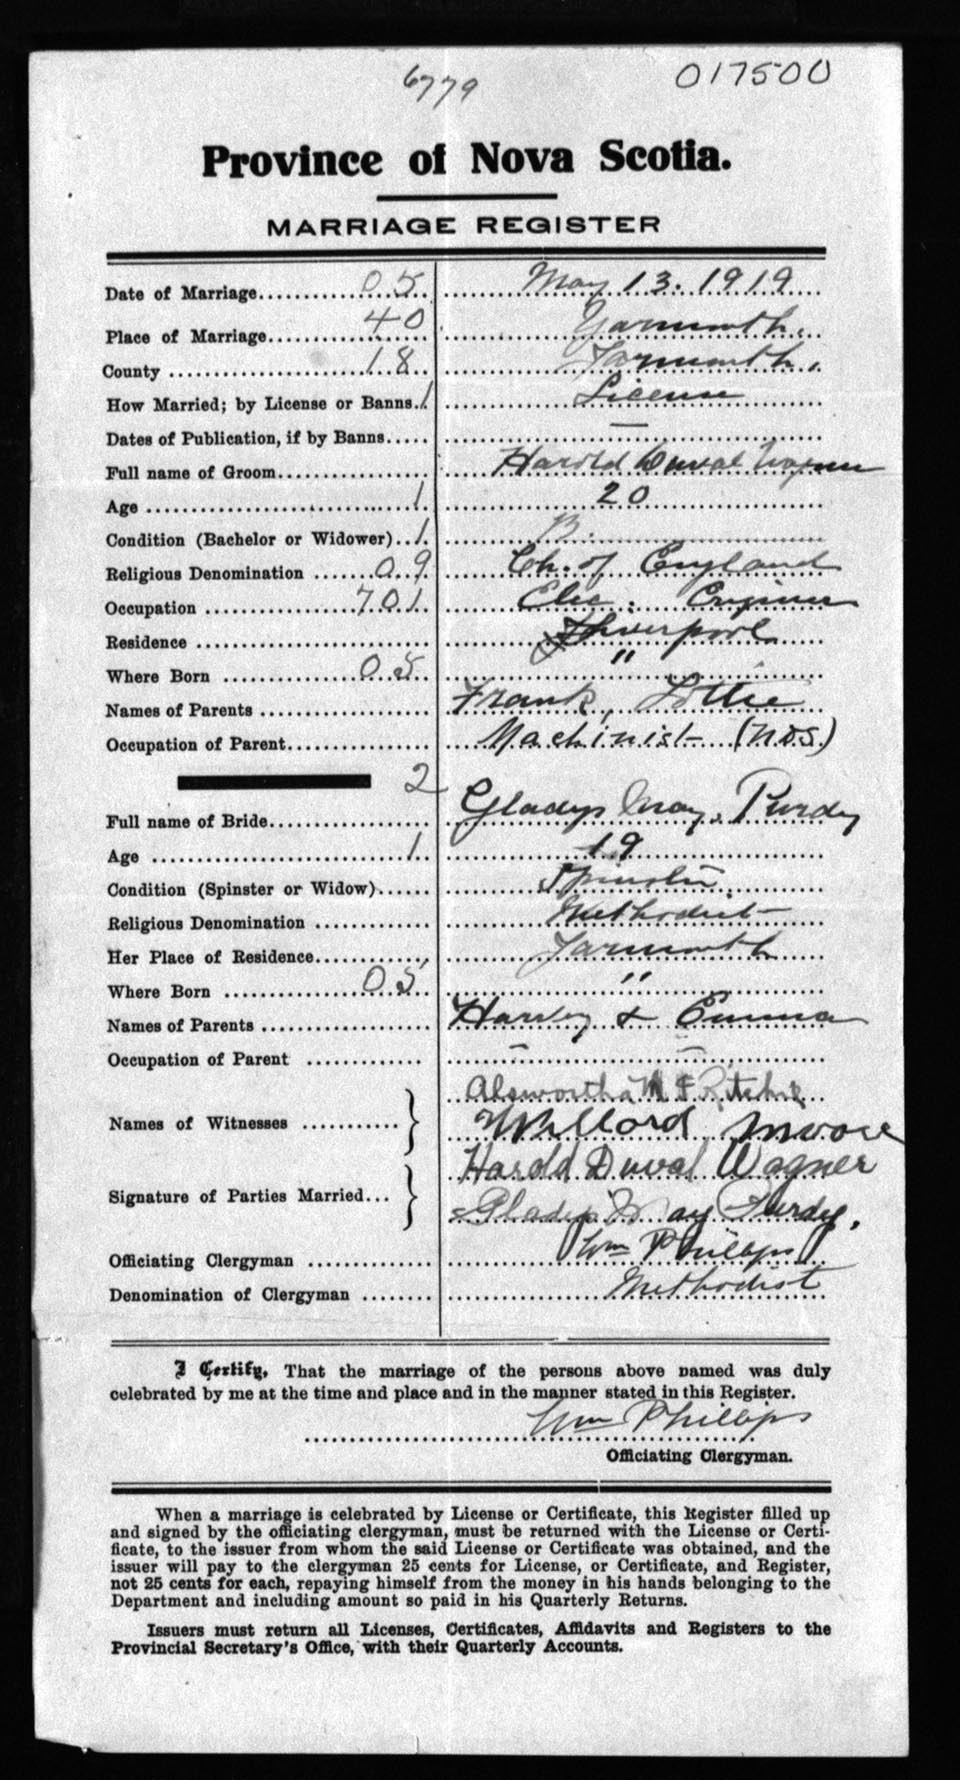 6779
017500
Province of Nova Scotia.
MARRIAGE REGISTER
Date of Marriage.............05.. May 13. 1919
Place of Marriage.............40 Yarmouth.
County .....................18. Yarmouth,
How Married; by License or Banns..1 License
Dates of Publication, if by Banns..... —
Full name of Groom................ Harold Duval Wagner
Age .............................1 20
Condition (Bachelor or Widower)..1. B.
Religious Denomination ......09 Ch. of England
Occupation ................701 Elec. Engineer
Residence ........................ Liverpool
Where Born ...............05... "
Names of Parents .................. Frank, Lottie
Occupation of Parent............... Machinist (N.S.)
2
Full name of Bride................. Gladys May Purdy
Age .............................1.. 19
Condition (Spinster or Widow)...... Spinster
Religious Denomination ............. Methodist
Her Place of Residence............. Yarmouth
Where Born ...............05.. "
Names of Parents .................. Harvey & Emma
Occupation of Parent ............. — —
Names of Witnesses ........... } Ritchie
Willard Moore
Signature of Parties Married... } Harold Duval Wagner
Gladys May Purdy.
Officiating Clergyman .............. Wm Phillips
Denomination of Clergyman ........ Methodist
I Certify, That the marriage of the persons above named was duly
celebrated by me at the time and place and in the manner stated in this Register.
Wm Phillips
Officiating Clergyman.
When a marriage is celebrated by License or Certificate, this Register filled up
and signed by the officiating clergyman, must be returned with the License or Certi-
ficate, to the issuer from whom the said License or Certificate was obtained, and the
issuer will pay to the clergyman 25 cents for License, or Certificate, and Register,
not 25 cents for each, repaying himself from the money in his hands belonging to the
Department and including amount so paid in his Quarterly Returns.
Issuers must return all Licenses, Certificates, Affidavits and Registers to the
Provincial Secretary's Office, with their Quarterly Accounts.